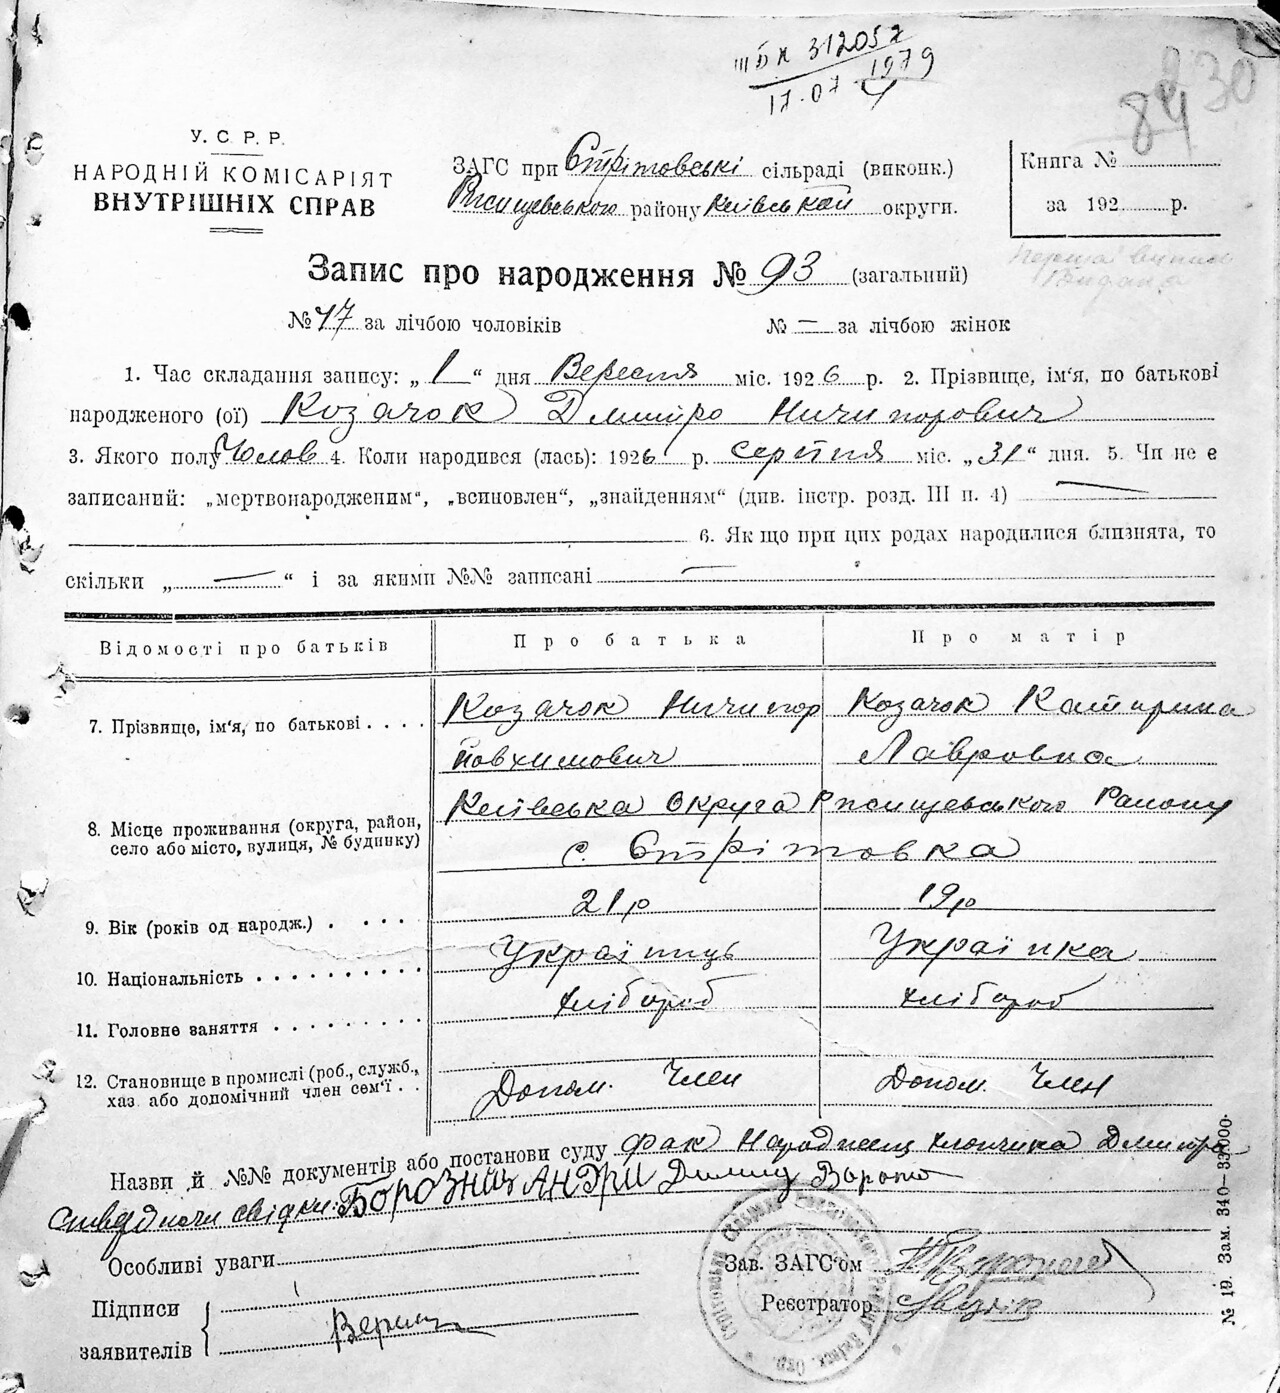 ІІІ БК 312057
17.07 1979
230
84
У. С. Р. Р.
НАРОДНІЙ КОМІСАРІЯТ
ВНУТРІШНІХ СПРАВ
ЗАГС при Стрітовські сільраді (виконк.)
Ржищевського району Київської округи.
Книга №
за 192 р.
Перша виписка
Видана
Запис про народження № 93 (загальний)
№ 47 за лічбою чоловіків № — за лічбою жінок
1. Час складання запису: „ 1 “ дня Вересня міс. 1926 р. 2. Прізвище, ім'я, по батькові
народженого (ої) Козачок Дмитро Ничипорович
3. Якого полу Чолов 4. Коли народився (лась): 1926 р. серпня міс. „31“ дня. 5. Чи не є
записаний: „мертвонародженим“, „всиновлен“, „знайденням“ (див. інстр. розд. III п. 4) —
6. Як що при цих родах народилися близнята, то
скільки „ — “ і за якими №№ записані —
Відомості про батьків Про батька Про матір
7. Прізвище, ім'я, по батькові . . . . Козачок Ничипор Козачок Катирина
Йовхимович Лавровна
8. Місце проживання (округа, район, село або місто, вулиця, № будинку) Київська округа Ржищевського Району
с. Стрітовка
9. Вік (років од народж.) . . . . 21 р 19 р
10. Національність . . . . . . . . . Українць Українка
11. Головне заняття . . . . . . . . Хлібороб Хлібороб
12. Становище в промислі (роб., служб., хаз. або допомічний член сем'ї . . Допом. Член Допом. Член
Назви й №№ документів або постанови суду Фак Народженя хлопчика Дмитра
Ствердили свідки: БОРОЗНИЦ АНДРИ
Особливі уваги
Зав. ЗАГС'ом
Підписи
заявителів
Реєстратор
№ 19. Зам. 340—33.000.